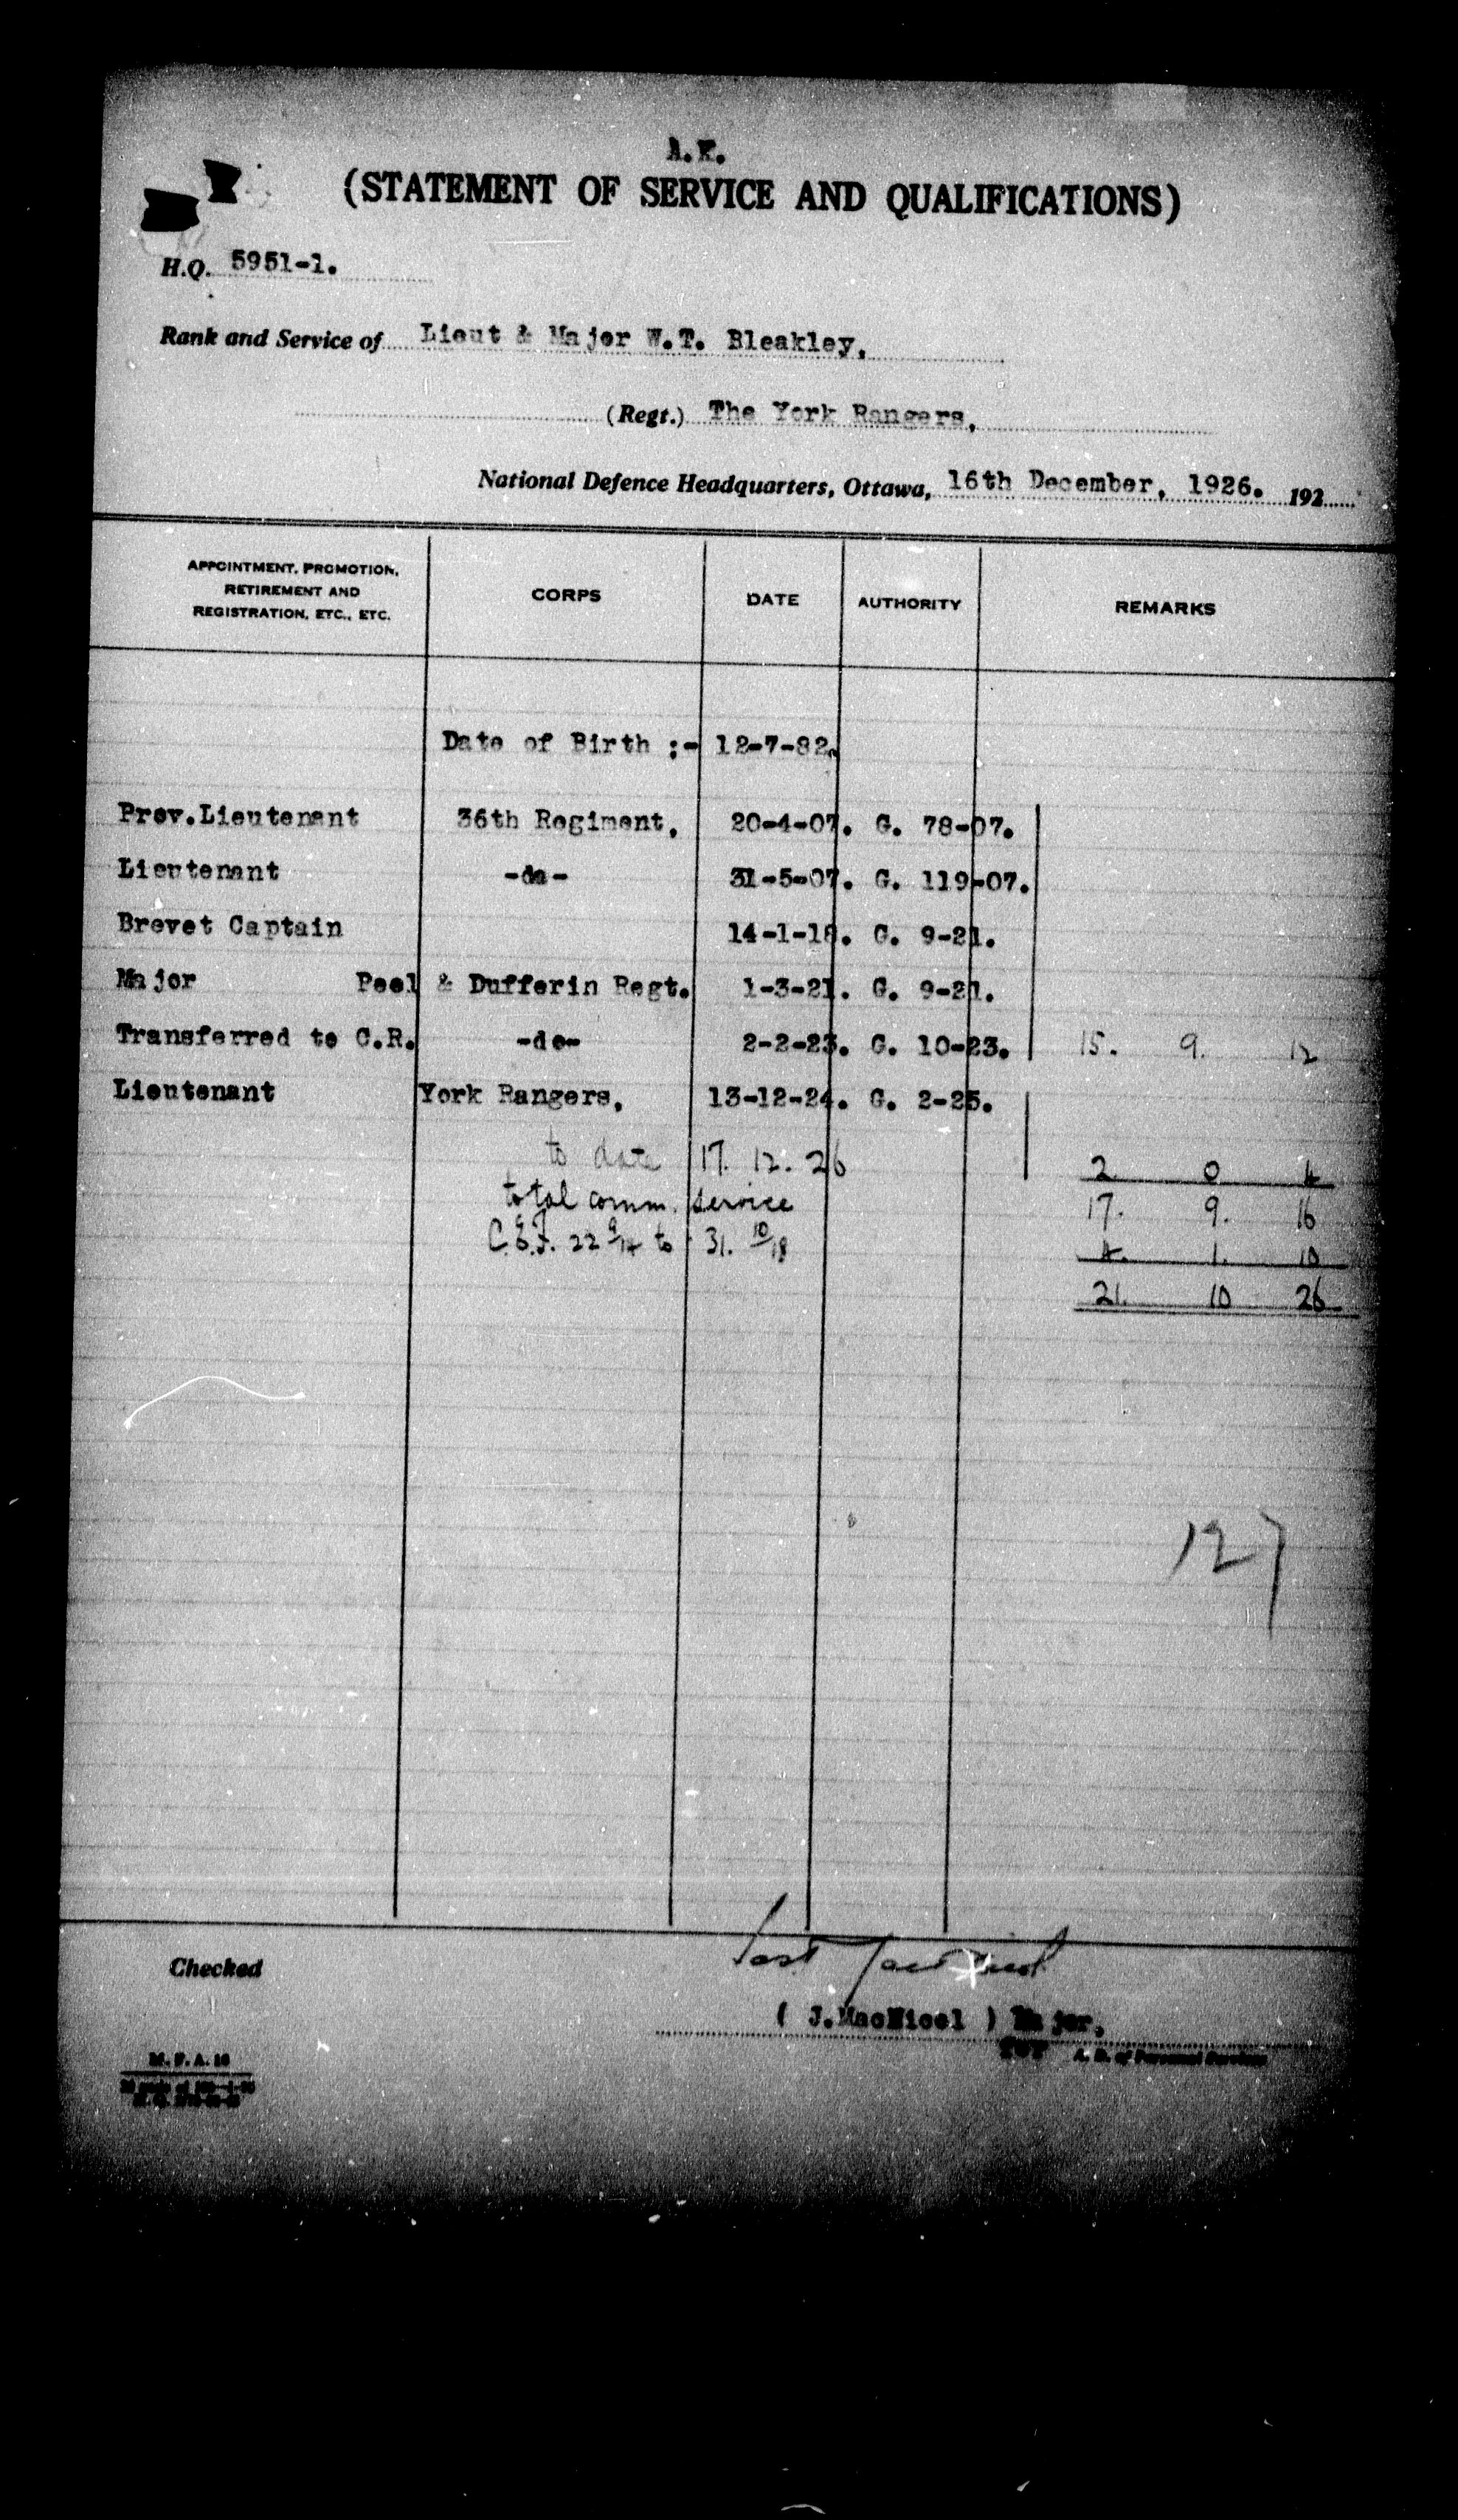 (STATEMENT OF SERVICE AND QUALIFICATIONS)
H.Q. 5951-1.
Rank and Service of Lieut & Major W.T. Bleakley,
(Regt.) The York Rangers,
National Defence Headquarters, Ottawa, 16th December, 1926. 192
APPOINTMENT, PROMOTION, RETIREMENT AND REGISTRATION, ETC., ETC. CORPS DATE AUTHORITY REMARKS
Date of Birth :- 12-7-82.
Prov.Lieutenant 36th Regiment, 20-4-07. G. 78-07.
Lieutenant -do- 31-5-07. G. 119-07.
Brevet Captain 14-1-18. G. 9-21.
Major Peel & Dufferin Regt. 1-3-21. G. 9-21.
Transferred to C.R. -do- 2-2-23. G. 10-23. 15. 9. 12
Lieutenant York Rangers, 13-12-24. G. 2-25.
to date 17. 12. 26 2 0 4
total comm. service 17. 9. 16
C.E.F. 22 9/14 to 31. 10/18 4. 1. 10
21. 10 26
127
Checked
( J.MacNicol ) Major,
for A. D. of Personal Services
M. F. A. 16